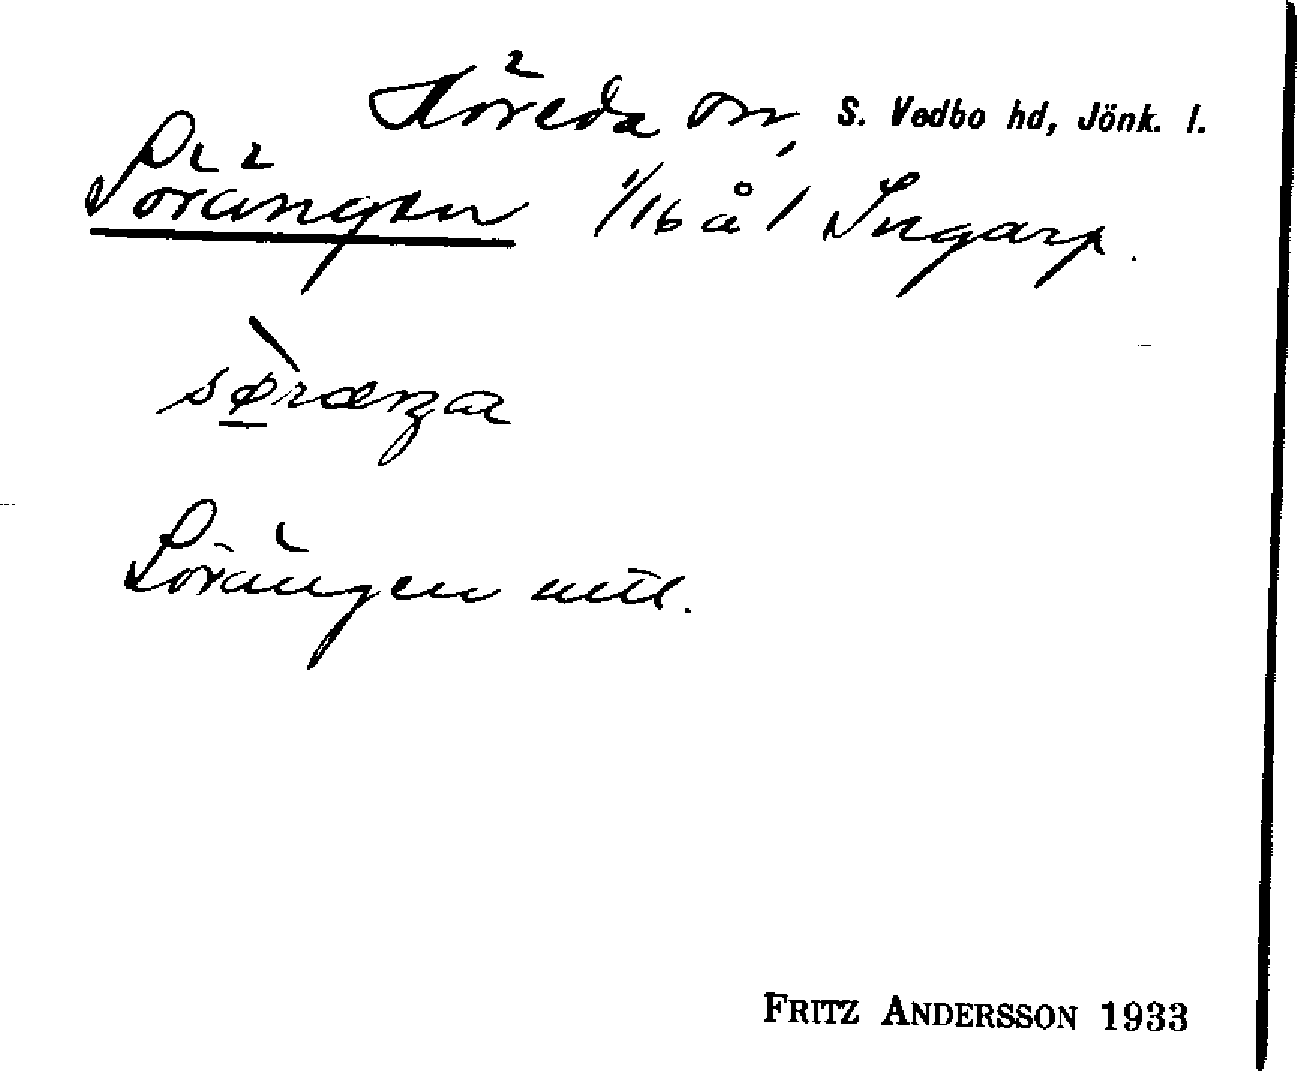 Höreda sn, S. Vedbo hd, Jönk. l.
Sörängen 1/16 å 1 Ingarp.
søræŋa
Sörängen mtl.
FRITZ ANDERSSON 1933